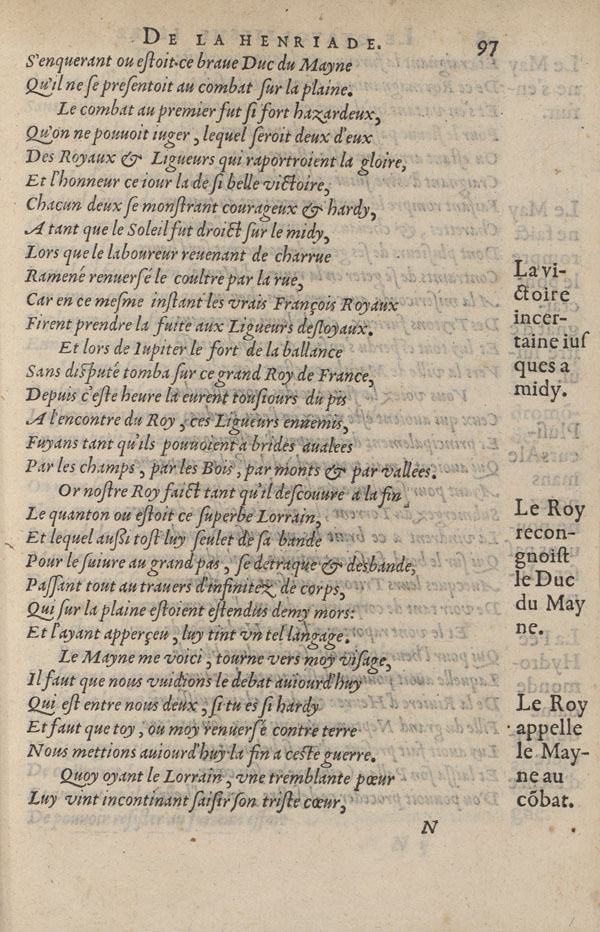 DE LA HENRIADE. 97
S'enquerant ou estoit-ce braue Duc du Mayne
Qu'il ne se presentoit au combat sur la plaine.
Le combat au premier fut si fort hazardeux,
Qu'on ne pouuoit iuger, lequel seroit deux d'eux
Des Royaux & Ligueurs qui raportroient la gloire,
Et l'honneur ce iour la de si belle victoire,
Chacun deux se monstrant courageux & hardy,
A tant que le Soleil fut droict sur le midy,
Lors que le laboureur reuenant de charrue
Ramené renuersé le coultre par la rue,
Car en ce mesme instant les vrais François Royaux
Firent prendre la fuite aux Ligueurs desloyaux.
La vi-
ctoire
incer-
taine ius
ques a
midy.
Et lors de Iupiter le fort de la ballance
Sans disputé tomba sur ce grand Roy de France,
Depuis c'este heure la eurent tousiours du pis
A l'encontre du Roy, ces Ligueurs ennemis,
Fuyans tant qu'ils pouuoient a brides auallees
Par les champs, par les Bois, par monts & par vallees.
Or nostre Roy faict tant qu'il descouure a la fin
Le quanton ou estoit ce superbe Lorrain,
Et lequel aussi tost luy seulet de sa bande
Pour le suiure au grand pas, se detraque & desbande,
Passant tout au trauers d'infinitez de corps,
Qui sur la plaine estoient estendus demy mors:
Et l'ayant apperçeu, luy tint vn tel langage.
Le Roy
recon-
gnoist
le Duc
du May
ne.
Le Mayne me voici, tourne vers moy visage,
Il faut que nous vuidions le debat auiourd'huy
Qui est entre nous deux, si tu es si hardy
Et faut que toy, ou moy renuersé contre terre
Nous mettions auiourd'huy la fin a ceste guerre.
Quoy oyant le Lorrain, vne tremblante pœur
Luy vint incontinant saisir son triste cœur,
Le Roy
appelle
le May-
ne au
cõbat.
N